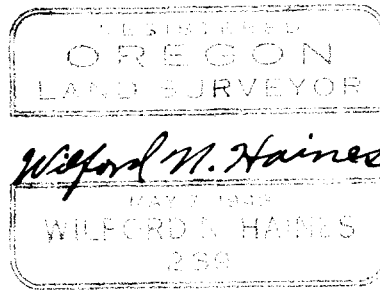 REGISTERED
OREGON
LAND SURVEYOR
Wilford N. Haines
MAY 7, 1949
WILFORD N. HAINES
298